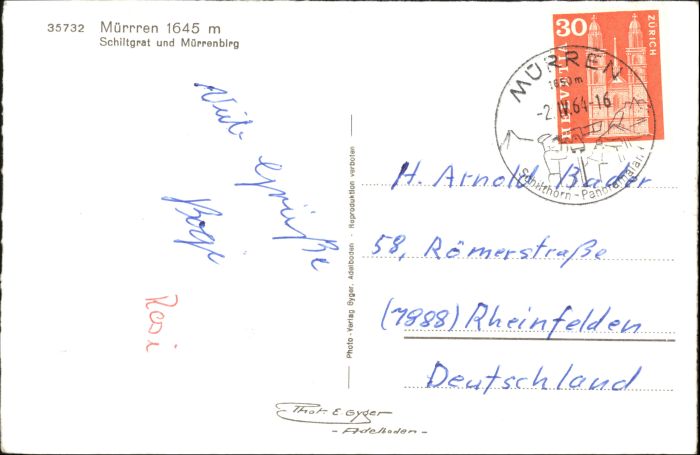 35732 Mürrren 1645 m
Schiltgrat und Mürrenbirg
30
HELVETIA
ZÜRICH
MÜRREN
1650 m
-2.IX.64-16
Schilthorn - Panorama
Viele Grüße
Rosi
Photo-Verlag Gyger, Adelboden - Reproduktion verboten
H. Arnold Bader
58, Römerstraße
(7888) Rheinfelden
Deutschland
Phot. E. Gyger
- Adelboden -